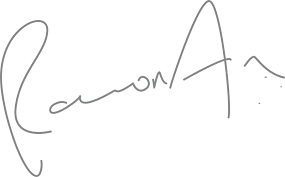 Ramon A